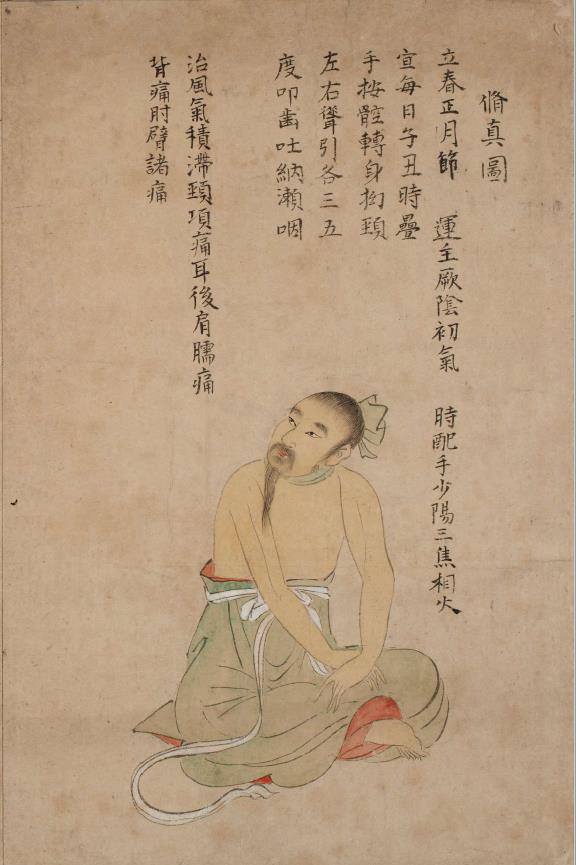 脩真圖
立春正月節 運主厥陰初氣 時配手少陽三焦相火
宜每日子丑時疊
手按髀轉身拗頸
左右聳引各三五
度叩齒吐納漱咽
治風氣積滯頸項痛耳後肩臑痛
背痛肘臂諸痛